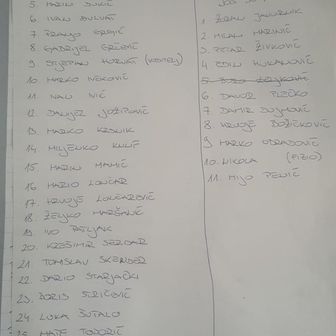 5. MARIN ĐUKIĆ
6. IVAN BULVAT
7. FRANJO GREGIĆ
8. GABRIJEL GRGEŠIĆ
9. STJEPAN HORVAT
10. MARKO IVEKOVIĆ
11. IVAN IVIĆ
12. DANIJEL JOŽIPOVIĆ
13. MARKO KRSNIK
14. MILJENKO KULIĆ
15. MARIN MAMIĆ
16. MARIO LONČAR
17. HRVOJE LONČAREVIĆ
18. ŽELJKO MARŠANIĆ
19. IVO PATLJAK
20. KREŠIMIR SERDAR
21. TOMISLAV SKENDER
22. DARIO STARJAČKI
23. BORIS STRIČEVIĆ
24. LUKA ŠUTALO
25. MATE TODORIĆ
1. ZORAN JAVORNIK
2. MILAN MARINIĆ
3. PETAR ŽIVKOVIĆ
4. EDIN HUKANOVIĆ
6. DAVOR PLEĆKO
7. DAMIR DUJMOVIĆ
8. HRVOJE BOŽIČKOVIĆ
9. MARKO OBRADOVIĆ
10. NIKOLA (FIZIO)
11. MIJO PENIĆ